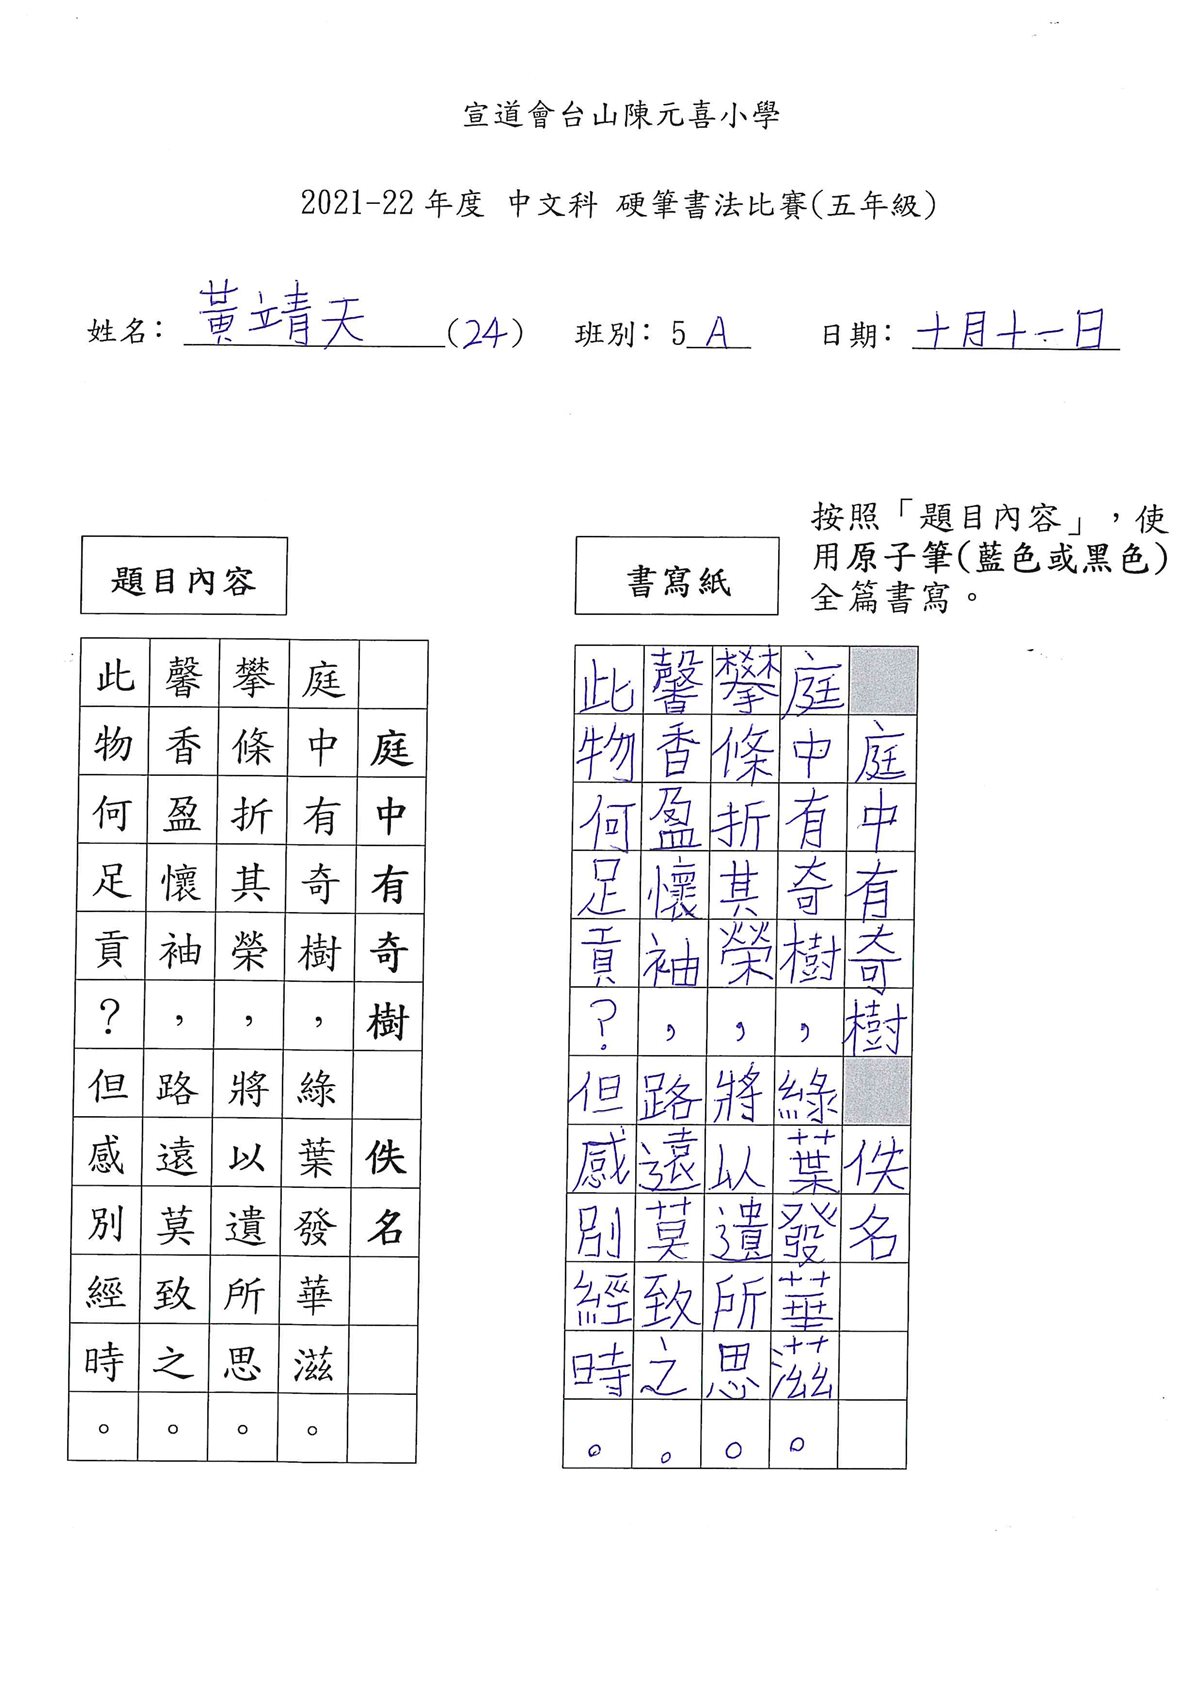 宣道會台山陳元喜小學
2021-22 年度 中文科 硬筆書法比賽(五年級)
姓名: 黃靖天 (24) 班別: 5 A 日期: 十月十一日
按照「題目內容」,使
用原子筆(藍色或黑色)
全篇書寫。
題目內容
庭中有奇樹 佚名
庭中有奇樹,綠葉發華滋。
攀條折其榮,將以遺所思。
馨香盈懷袖,路遠莫致之。
此物何足貢?但感別經時。
書寫紙
庭中有奇樹 佚名
庭中有奇樹,綠葉發華滋。
攀條折其榮,將以遺所思。
馨香盈懷袖,路遠莫致之。
此物何足貢?但感別經時。